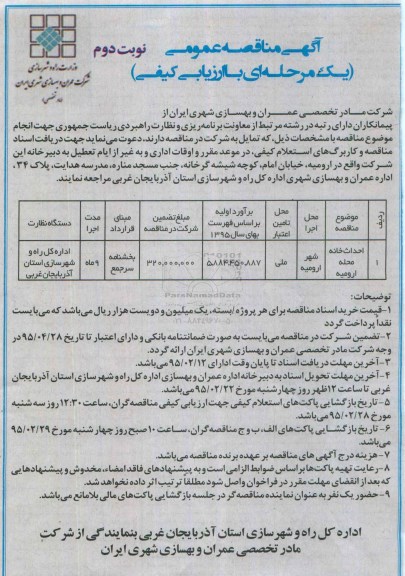 آگهی مناقصه عمومی
نوبت دوم
(یک مرحله‌ای با ارزیابی کیفی)
وزارت راه و شهرسازی
شرکت عمران و بهسازی شهری ایران
(مادر تخصصی)
شرکت مادر تخصصی عمران و بهسازی شهری ایران از
پیمانکاران دارای رتبه در رشته مرتبط از معاونت برنامه ریزی و نظارت راهبردی ریاست جمهوری جهت انجام
موضوع مناقصه با مشخصات ذیل، که تمایل به شرکت در مناقصه دارند، دعوت می‌نماید جهت دریافت اسناد
مناقصه و کاربرگ‌های استعلام کیفی، در موعد مقرر و اوقات اداری و به غیر از ایام تعطیل به دبیرخانه این
شرکت واقع در ارومیه، خیابان امام، کوچه شیشه گرخانه، جنب مسجد مناره، مدرسه هدایت، پلاک ۳۴،
اداره عمران و بهسازی شهری اداره کل راه و شهرسازی استان آذربایجان غربی مراجعه نمایند.
ردیف | موضوع مناقصه | محل اجرا | محل تامین اعتبار | برآورد اولیه بر اساس فهرست بهای سال ۱۳۹۵ | مبلغ تضمین شرکت در مناقصه | مبنای قرارداد | مدت اجرا | دستگاه نظارت
۱ | احداث خانه محله ارومیه | شهر ارومیه | ملی | ۵,۸۸۴,۴۵۰,۸۸۷ | ۳۲۰,۰۰۰,۰۰۰ | بخشنامه سرجمع | ۹ ماه | اداره کل راه و شهرسازی استان آذربایجان غربی
توضیحات:
۱- قیمت خرید اسناد مناقصه برای هر پروژه/بسته، یک میلیون و دویست هزار ریال می‌باشد که می‌بایست
نقدا پرداخت گردد
۲- تضمین شرکت در مناقصه می‌بایست به صورت ضمانتنامه بانکی و دارای اعتبار تا تاریخ ۹۵/۰۴/۲۸ در
وجه شرکت مادر تخصصی عمران و بهسازی شهری ایران ارائه گردد.
۳- آخرین مهلت دریافت اسناد تا پایان وقت اداری ۹۵/۰۲/۱۲ می‌باشد.
۴- آخرین مهلت تحویل اسناد به دبیرخانه اداره عمران و بهسازی اداره کل راه و شهرسازی استان آذربایجان
غربی تا ساعت ۱۲ ظهر روز چهارشنبه مورخ ۹۵/۰۲/۲۲ می‌باشد.
۵- تاریخ بازگشایی پاکت‌های استعلام کیفی جهت ارزیابی کیفی مناقصه‌گران، ساعت ۱۲:۳۰ روز سه شنبه
مورخ ۹۵/۰۲/۲۸ می‌باشد.
۶- تاریخ بازگشایی پاکت‌های الف، ب و ج مناقصه گران، ساعت ۱۰ صبح روز چهارشنبه مورخ ۹۵/۰۲/۲۹
می‌باشد.
۷- هزینه درج آگهی های مناقصه بر عهده برنده مناقصه می‌باشد.
۸- رعایت تهیه پاکت‌ها بر اساس ضوابط الزامی است و به پیشنهادهای فاقد امضاء، مخدوش و پیشنهادهایی
که بعد از انقضای مهلت مقرر در فراخوان واصل شود مطلقا ترتیب اثر داده نخواهد شد.
۹- حضور یک نفر به عنوان نماینده مناقصه گر در جلسه بازگشایی پاکت‌های مالی بلامانع می‌باشد.
اداره کل راه و شهرسازی استان آذربایجان غربی بنمایندگی از شرکت
مادر تخصصی عمران و بهسازی شهری ایران